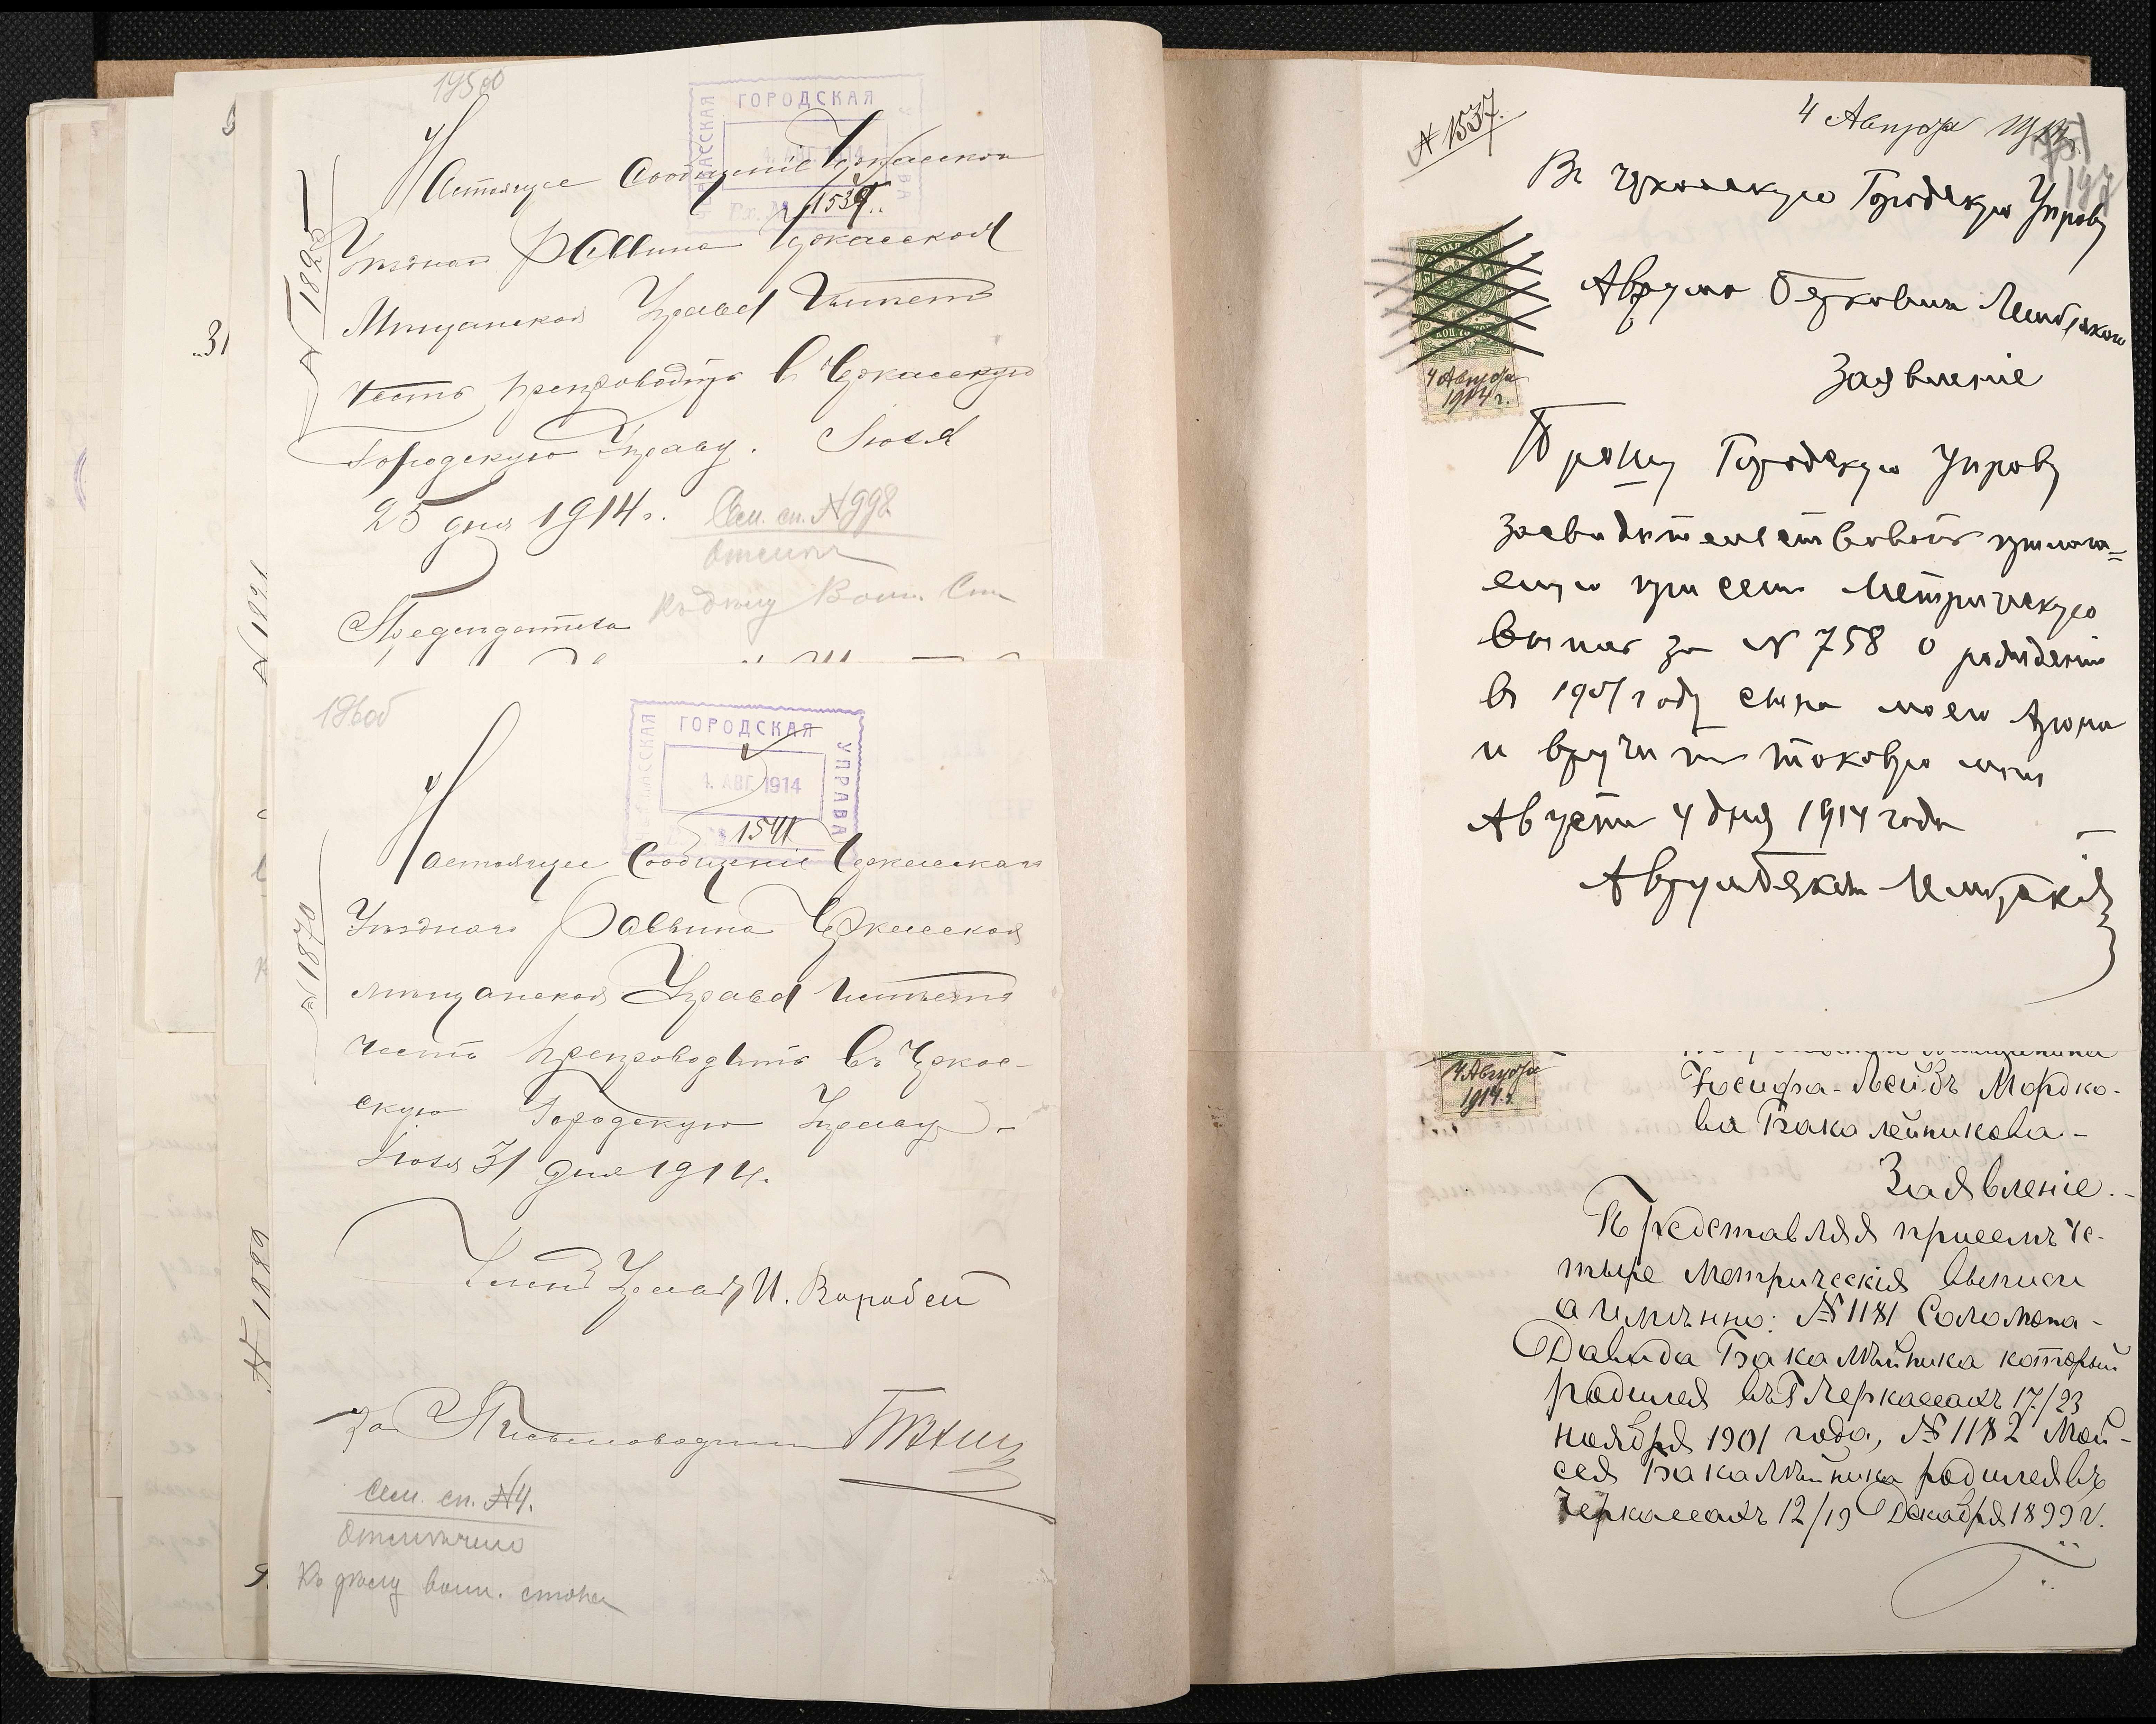 195об
ГОРОДСКАЯ
1539
Настоящее Сообщеніе Черкасскаго
Уѣзднаго Раввина Черкасская
Мѣщанская Управа Имѣетъ
честь препроводить въ Черкасскую
Городскую Управу. Іюля
25 дня 1914 г.
№ 1825
Сем. сп. № 998
Отмѣч
Къ дѣлу Воин. Ст
Председатель
31
№ 1891
196об
ГОРОДСКАЯ
УПРАВА
4. АВГ. 1914
1541
Настоящее Сообщеніе Черкасскаго
Уѣзднаго Раввина Черкасская
мѣщанская Управа имѣетъ
честь препроводить въ Черкас-
скую Городскую Управу -
Іюля 31 дня 1914.
№ 1870
Членъ Управы И. Воробей
За Письмоводителя
№ 1889
Сем. сп. №4.
Отмѣчено
Къ дѣлу воин. стола
№ 1537.
4 Августа
197
Въ Черкасскую Городскую Управу
Аврума Берковича
Заявленіе
4 Августа
1914 г.
Прошу Городскую Управу
засвидѣтельствовать прилага=
емую при семъ Метрическую
выпись за № 758 о рожденіи
въ году сына моего
и вручить таковую мнѣ
Августа 4 дня 1914 года
4 Августа
1914 г.
Іосифа-Лейбъ Мордко-
ва Бакалейникова -
Заявленіе. -
Представляя при семъ че-
тыре Метрическія выписи
а имѣнно: № 1181 Соломона -
Давида Бакалѣйника который
родился въ Г Черкассахъ 17/23
ноября 1901 года, № 1182 Мой-
сея Бакалѣйника родился въ
Черкассахъ 12/19 Декабря 1899 г.